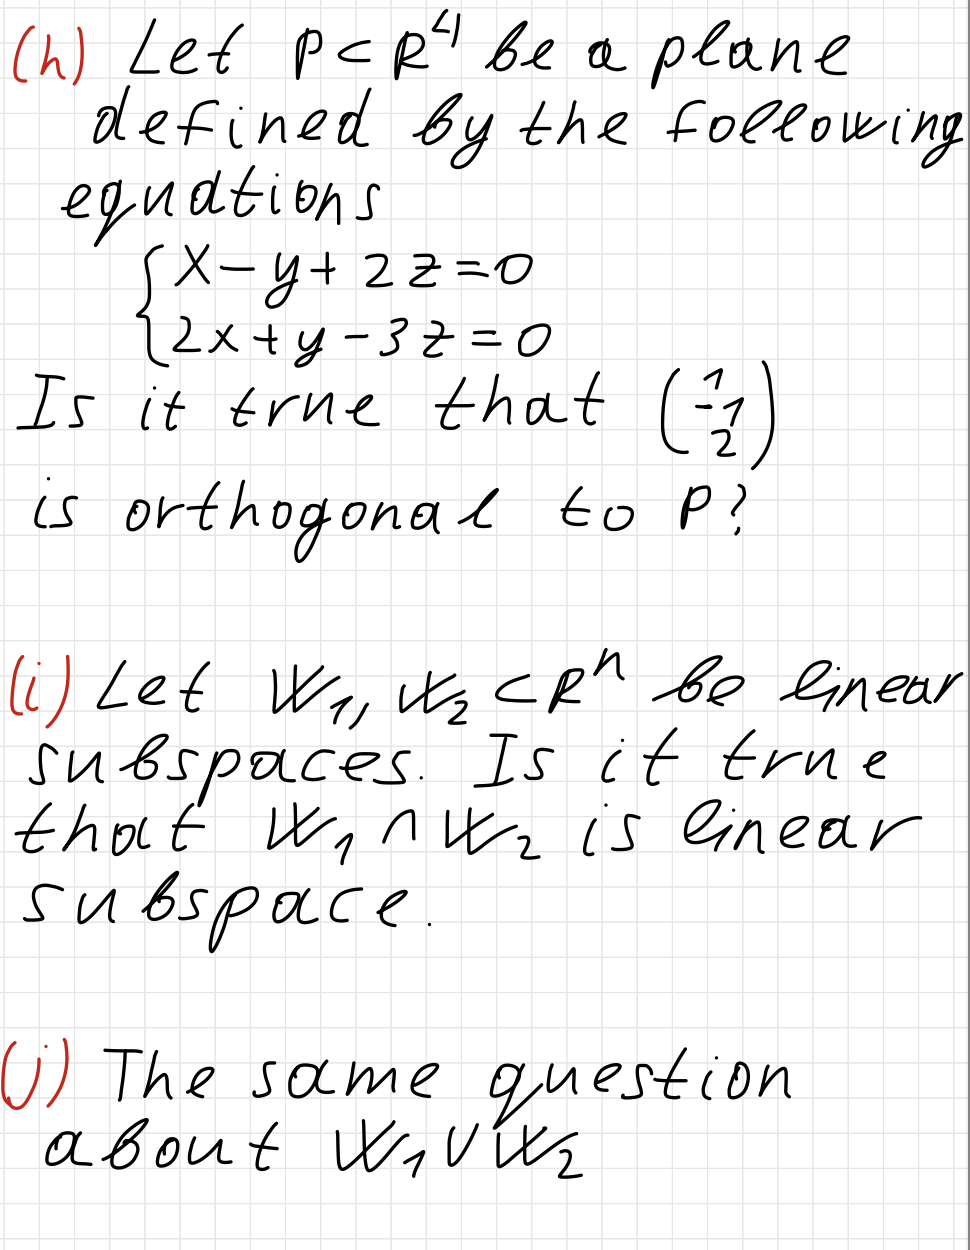 (h) Let P ⊂ R⁴ be a plane
defined by the following
equations
{ x - y + 2z = 0
2x + y - 3z = 0
Is it true that (1 -1 2)
is orthogonal to P?
(i) Let W₁, W₂ ⊂ Rⁿ be linear
subspaces. Is it true
that W₁ ∩ W₂ is linear
subspace.
(j) The same question
about W₁ ∪ W₂